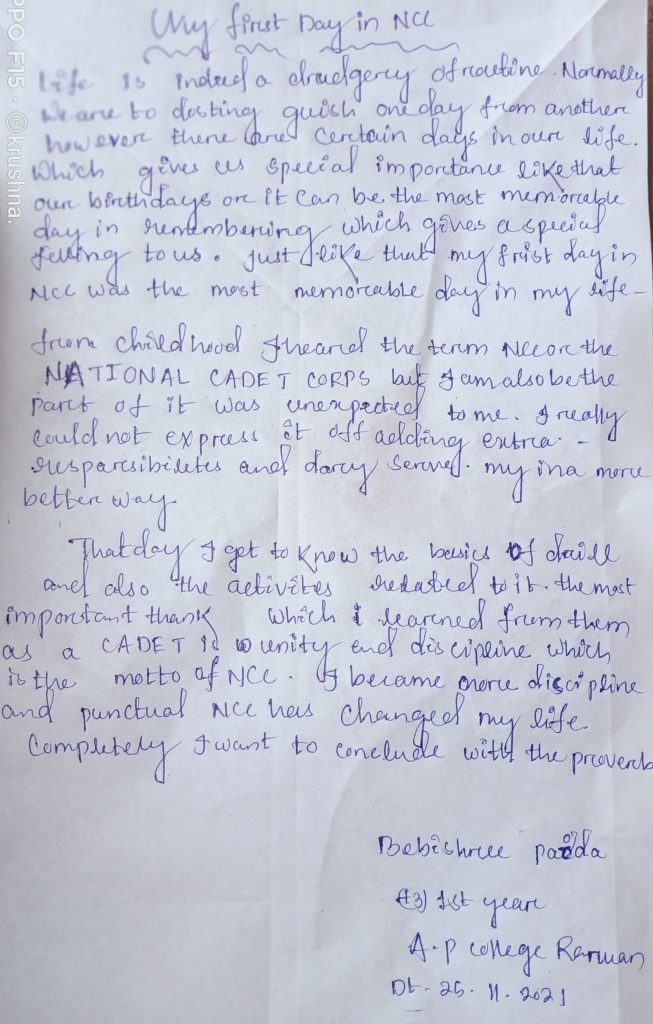 My first Day in NCC
Life is indeed a drudgery of routine. Normally
We are to dosting guish one day from another
however there are certain days in our life.
Which gives us special importance like that
our birthdays or it can be the most memorable
day in remembering which gives a special
felling to us. just like that my frist day in
NCC was the most memorable day in my life-
from childhood I heard the term NCC or the
NATIONAL CADET CORPS but I am also be the
part of it was unexpected to me. I really
could not express it off adding extra -
and served. my in a more
better way.
That day I get to know the basics of drill
and also the activites related to it. the most
important thank which i learned from them
as a CADET is unity end discipline which
is the motto of NCC. I became more discipline
and punctual NCC has changed my life
Completely I want to conclude with the proverb
Bebishree
+3) 1st year
A.p college Rarman
Dt- 25. 11. 2021
PPO F15 · @krushna.